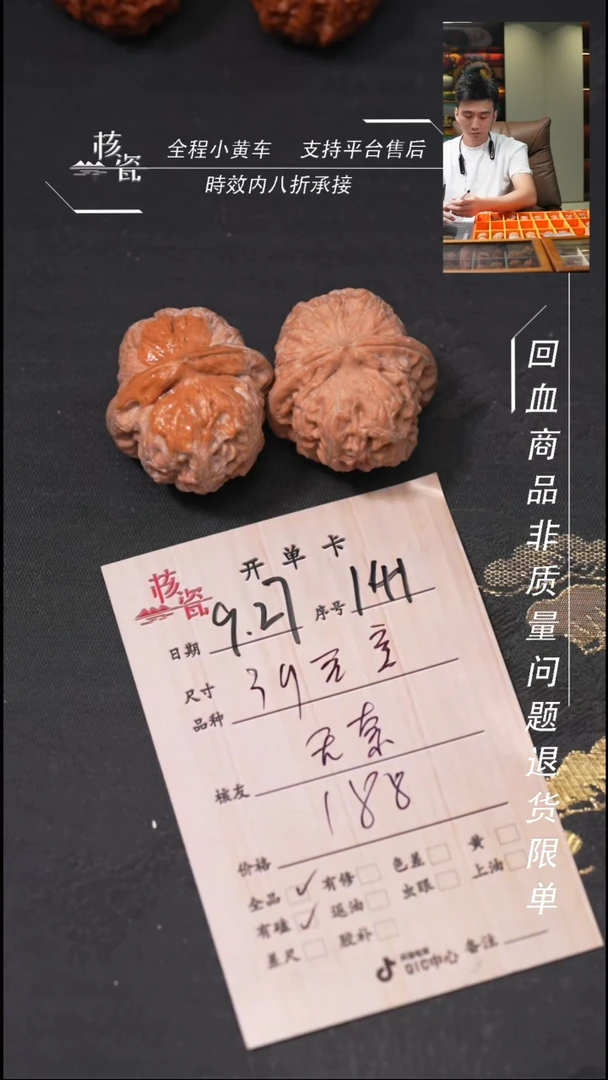 核瓷
全程小黄车 支持平台售后
時效内八折承接
回血商品非质量问题退货限单
核瓷
开单卡
日期 9.27 序号 141
尺寸 39
品种
核友
188
价格
全品 ✓ 有修 色差 黄
有磕 ✓ 返油 虫眼 上油
差尺 胶补
QIC中心 备注